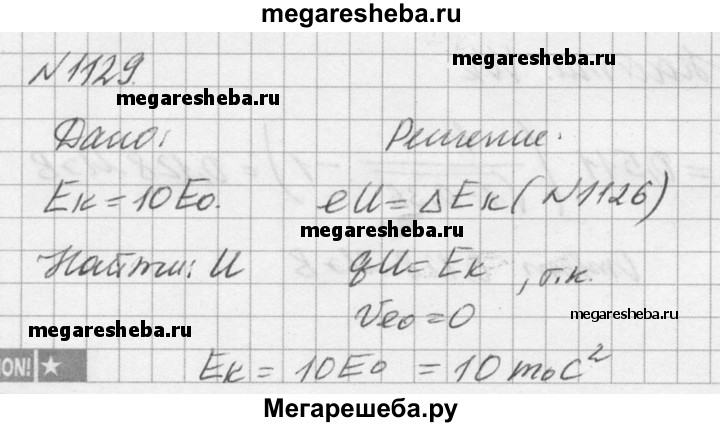 megaresheba.ru
N1129.
megaresheba.ru
megaresheba.ru
Дано: Решение:
Eк=10E0. eU=ΔEк(N1126)
megaresheba.ru
Найти: U qU=Eк, т.к.
Veo=0
megaresheba.ru
megaresheba.ru
ON!
Eк = 10E0 = 10m0C²
Мегарешеба.ру